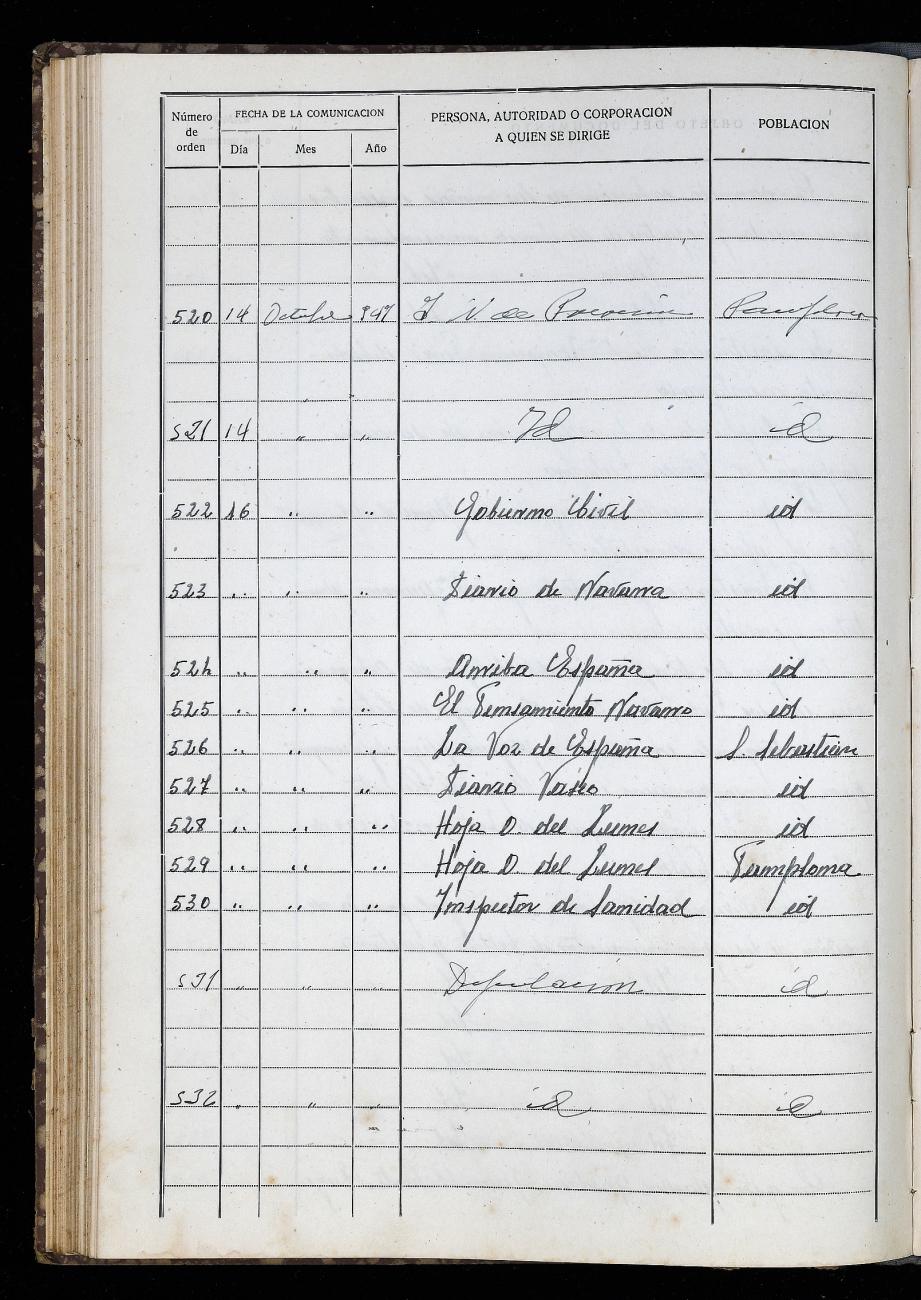 Número de orden
FECHA DE LA COMUNICACION
Día Mes Año
PERSONA, AUTORIDAD O CORPORACION
A QUIEN SE DIRIGE
POBLACION
520 14 Octubre 947 Pamplona
521 14 " " Id id
522 16 " " Gobierno Civil id
523 " " " Diario de Navarra id
524 " " " Arriba España id
525 " " " El Pensamiento Navarro id
526 " " " La Voz de España S. Sebastian
527 " " " Diario Vasco id
528 " " " Hoja O. del Lunes id
529 " " " Hoja O. del Lunes Pamplona
530 " " " Inspector de Sanidad id
531 " " " Diputación id
532 " " " id id